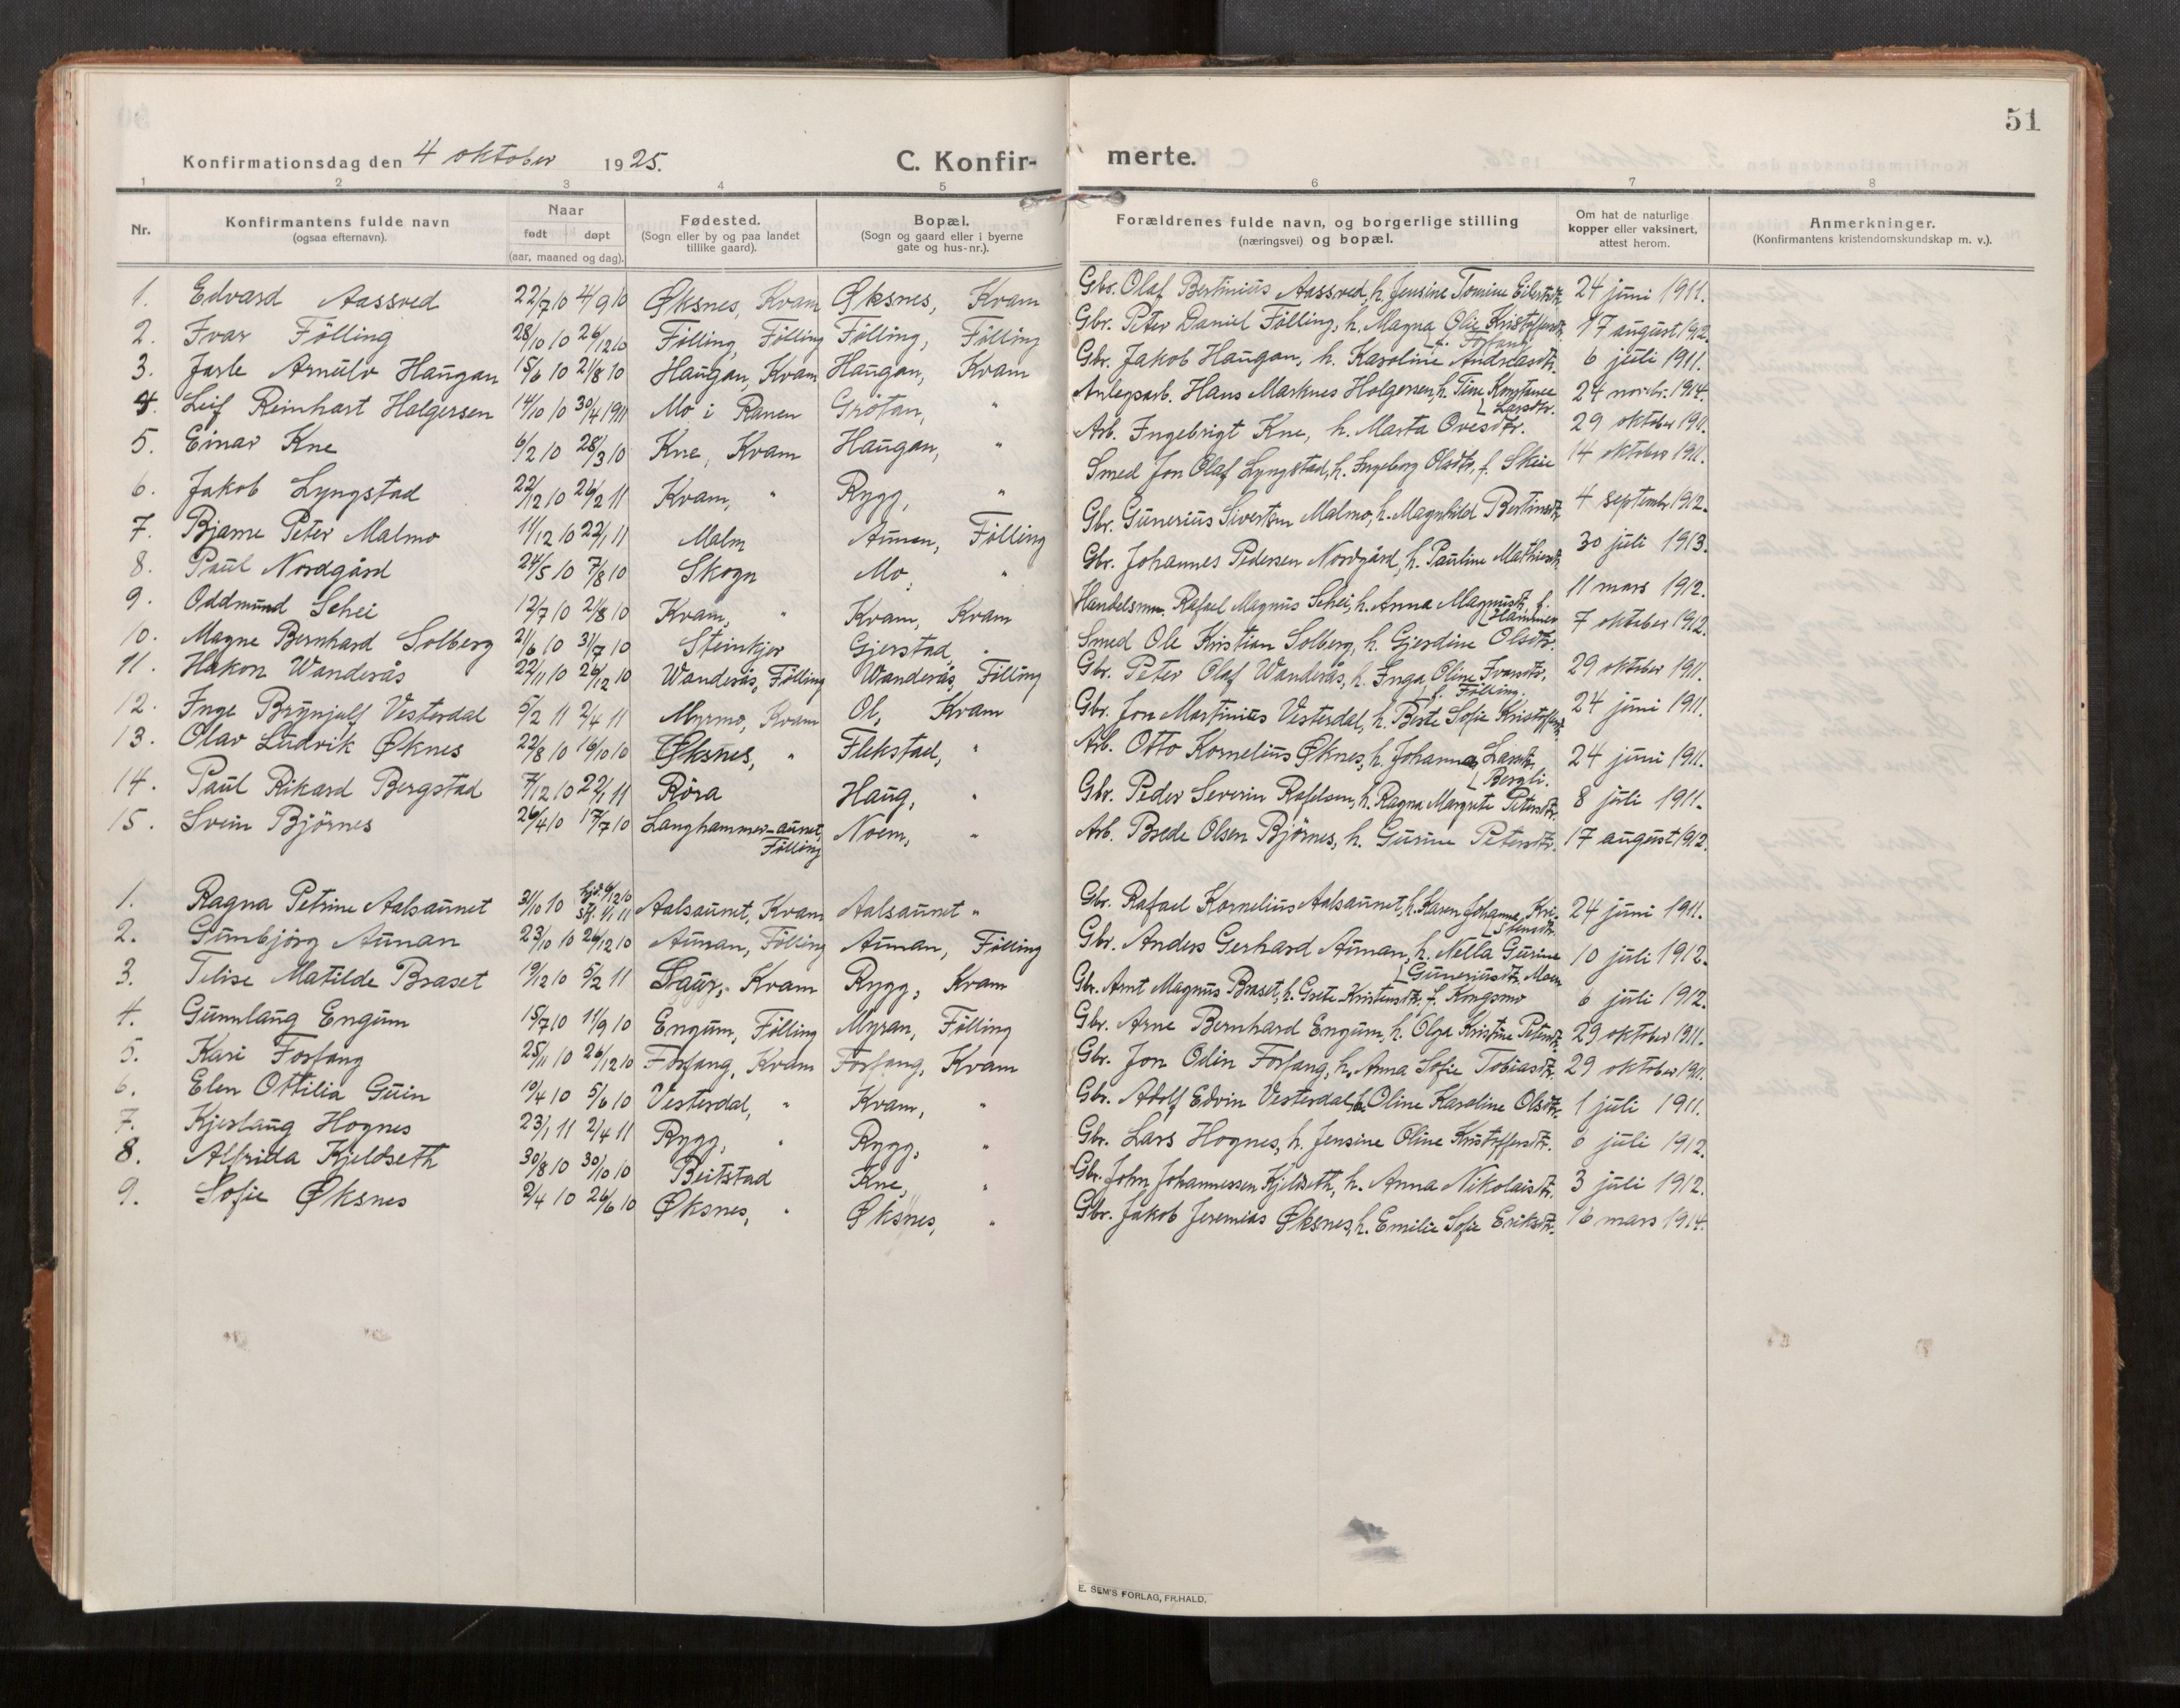 51
Konfirmationsdag den 4 oktober 1925. C. Konfir- merte.
1 2 3 4 5 6 7 8
Nr. Konfirmantens fulde navn (ogsaa efternavn). Naar født døpt (aar, maaned og dag). Fødested. (Sogn eller by og paa landet tillike gaard). Bopæl. (Sogn og gaard eller i byerne gate og hus-nr.). Forældrenes fulde navn, og borgerlige stilling (næringsvei) og bopæl. Om hat de naturlige kopper eller vaksinert, attest herom. Anmerkninger. (Konfirmantens kristendomskundskap m. v.).
1. Edvard Aassved 22/7 10 4/9 10 Øksnes, Kvam Øksnes, Kvam Gbr. Olaf Bertinius Aassved, h. Jensine Tomine Eilertsdtr. 24 juni 1911.
2. Ivar Fölling 28/10 10 26/12 10 Fölling, Fölling Fölling, Fölling Gbr. Peter Daniel Fölling, h. Magna Olie Kristoffersdtr. f. Forfang 17 august 1912.
3. Jarle Arnulv Haugan 15/6 10 21/8 10 Haugan, Kvam Haugan, Kvam Gbr. Jakob Haugan, h. Karoline Andreasdtr. 6 juli 1911.
4. Leif Reinhart Holgersen 14/10 10 30/4 1911 Mo i Ranen Grötan, " Anlegsarb. Hans Marknes Holgersen, h. Tine Konstanse Larsdtr. 24 novbr. 1914.
5. Einar Kne 6/2 10 28/3 10 Kne, Kvam Haugan, " Arb. Ingebrigt Kne, h. Marta Ovesdtr. 29 oktober 1911.
6. Jakob Lyngstad 22/12 10 26/2 11 Kvam, " Rygg, " Smed Jon Olaf Lyngstad, h. Ingeborg Olsdtr., f. Skeie 14 oktober 1911.
7. Bjarne Peter Malmo 11/12 10 22/1 11 Malm Aunan, Fölling Gbr. Gunerius Sivertsen Malmo, h. Magnhild Bertinsdtr. 4 septembr. 1912.
8. Paul Nordgård 24/5 10 7/8 10 Skogn Mo, " Gbr. Johannes Pedersen Nordgård, h. Pauline Mathiasdtr. 30 juli 1913.
9. Oddmund Schei 12/7 10 21/8 10 Kvam, " Kvam, Kvam Handelsmn. Rafael Magnus Schei, h. Anna Magnusdtr. f. Hammer 11 mars 1912.
10. Magne Bernhard Solberg 21/6 10 31/7 10 Steinkjer Gjerstad, " Smed Ole Kristian Solberg, h. Gjerdine Olsdtr. 7 oktober 1912.
11. Håkon Wanderås 22/11 10 26/12 10 Wanderås, Fölling Wanderås, Fölling Gbr. Peter Olaf Wanderås, h. Inga Oline Ivarsdtr. f. Fölling. 29 oktober 1911.
12. Inge Brynjulf Vesterdal 5/2 11 2/4 11 Myrmo, Kvam Ol, Kvam Gbr. Jon Martinius Vesterdal, h. Berte Sofie Kristoffersdtr. 24 juni 1911.
13. Olav Ludvik Øknes 22/8 10 16/10 10 Øksnes, " Flekstad, " Arb. Otto Kornelius Øknes, h. Johanna Larsdtr. Bergli. 24 juni 1911.
14. Paul Rikard Bergstad 7/12 10 22/1 11 Röra Haug, " Gbr. Peder Severin Rafelsen, h. Ragna Margrete Petersdtr. 8 juli 1911.
15. Svein Björnes 26/4 10 17/7 10 Langhammer-aunet, Fölling Noem, " Arb. Brede Olsen Björnes, h. Gurine Petersdtr. 17 august 1912.
1. Ragna Petrine Aalsaunet 31/10 10 hjd. 6/12 10 st. 1/1 11 Aalsaunet, Kvam Aalsaunet " Gbr. Rafael Kornelius Aalsaunet, h. Karen Johanna Kri- stensdtr. 24 juni 1911.
2. Gunbjörg Aunan 23/10 10 26/12 10 Aunan, Fölling Aunan, Fölling Gbr. Anders Gerhard Aunan, h. Nella Gurine Guneriusdtr. Moen 10 juli 1912.
3. Telise Matilde Braset 19/12 10 5/2 11 Saur, Kvam Rygg, Kvam Gbr. Arnt Magnus Braset, h. Grete Kristensdtr. f. Kongsmo 6 juli 1912.
4. Gunnlaug Engum 15/7 10 11/9 10 Engum, Fölling Myran, Fölling Gbr. Arne Bernhard Engum, h. Olga Kristine Petersdtr. 29 oktober 1911.
5. Kari Forfang 25/11 10 26/12 10 Forfang, Kvam Forfang, Kvam Gbr. Jon Odin Forfang, h. Anna Sofie Tobiasdtr. 29 oktober 1911.
6. Elen Ottilia Guin 19/4 10 5/6 10 Vesterdal, " Kvam, " Gbr. Adolf Edvin Vesterdal, h. Oline Karoline Olsdtr. 1 juli 1911.
7. Kjerlaug Hognes 23/1 11 2/4 11 Rygg, " Rygg, " Gbr. Lars Hognes, h. Jensine Oline Kristoffersdtr. 6 juli 1912.
8. Alfrida Kjeldseth 30/8 10 30/10 10 Beitstad Kne, " Gbr. John Johannessen Kjeldseth, h. Anna Nikolaisdtr. 3 juli 1912.
9. Sofie Øksnes 2/4 10 26/6 10 Øksnes, " Øksnes, " Gbr. Jakob Jeremias Øksnes, h. Emilie Sofie Eriksdtr. 16 mars 1914.
E. SEM'S FORLAG, FR.HALD.